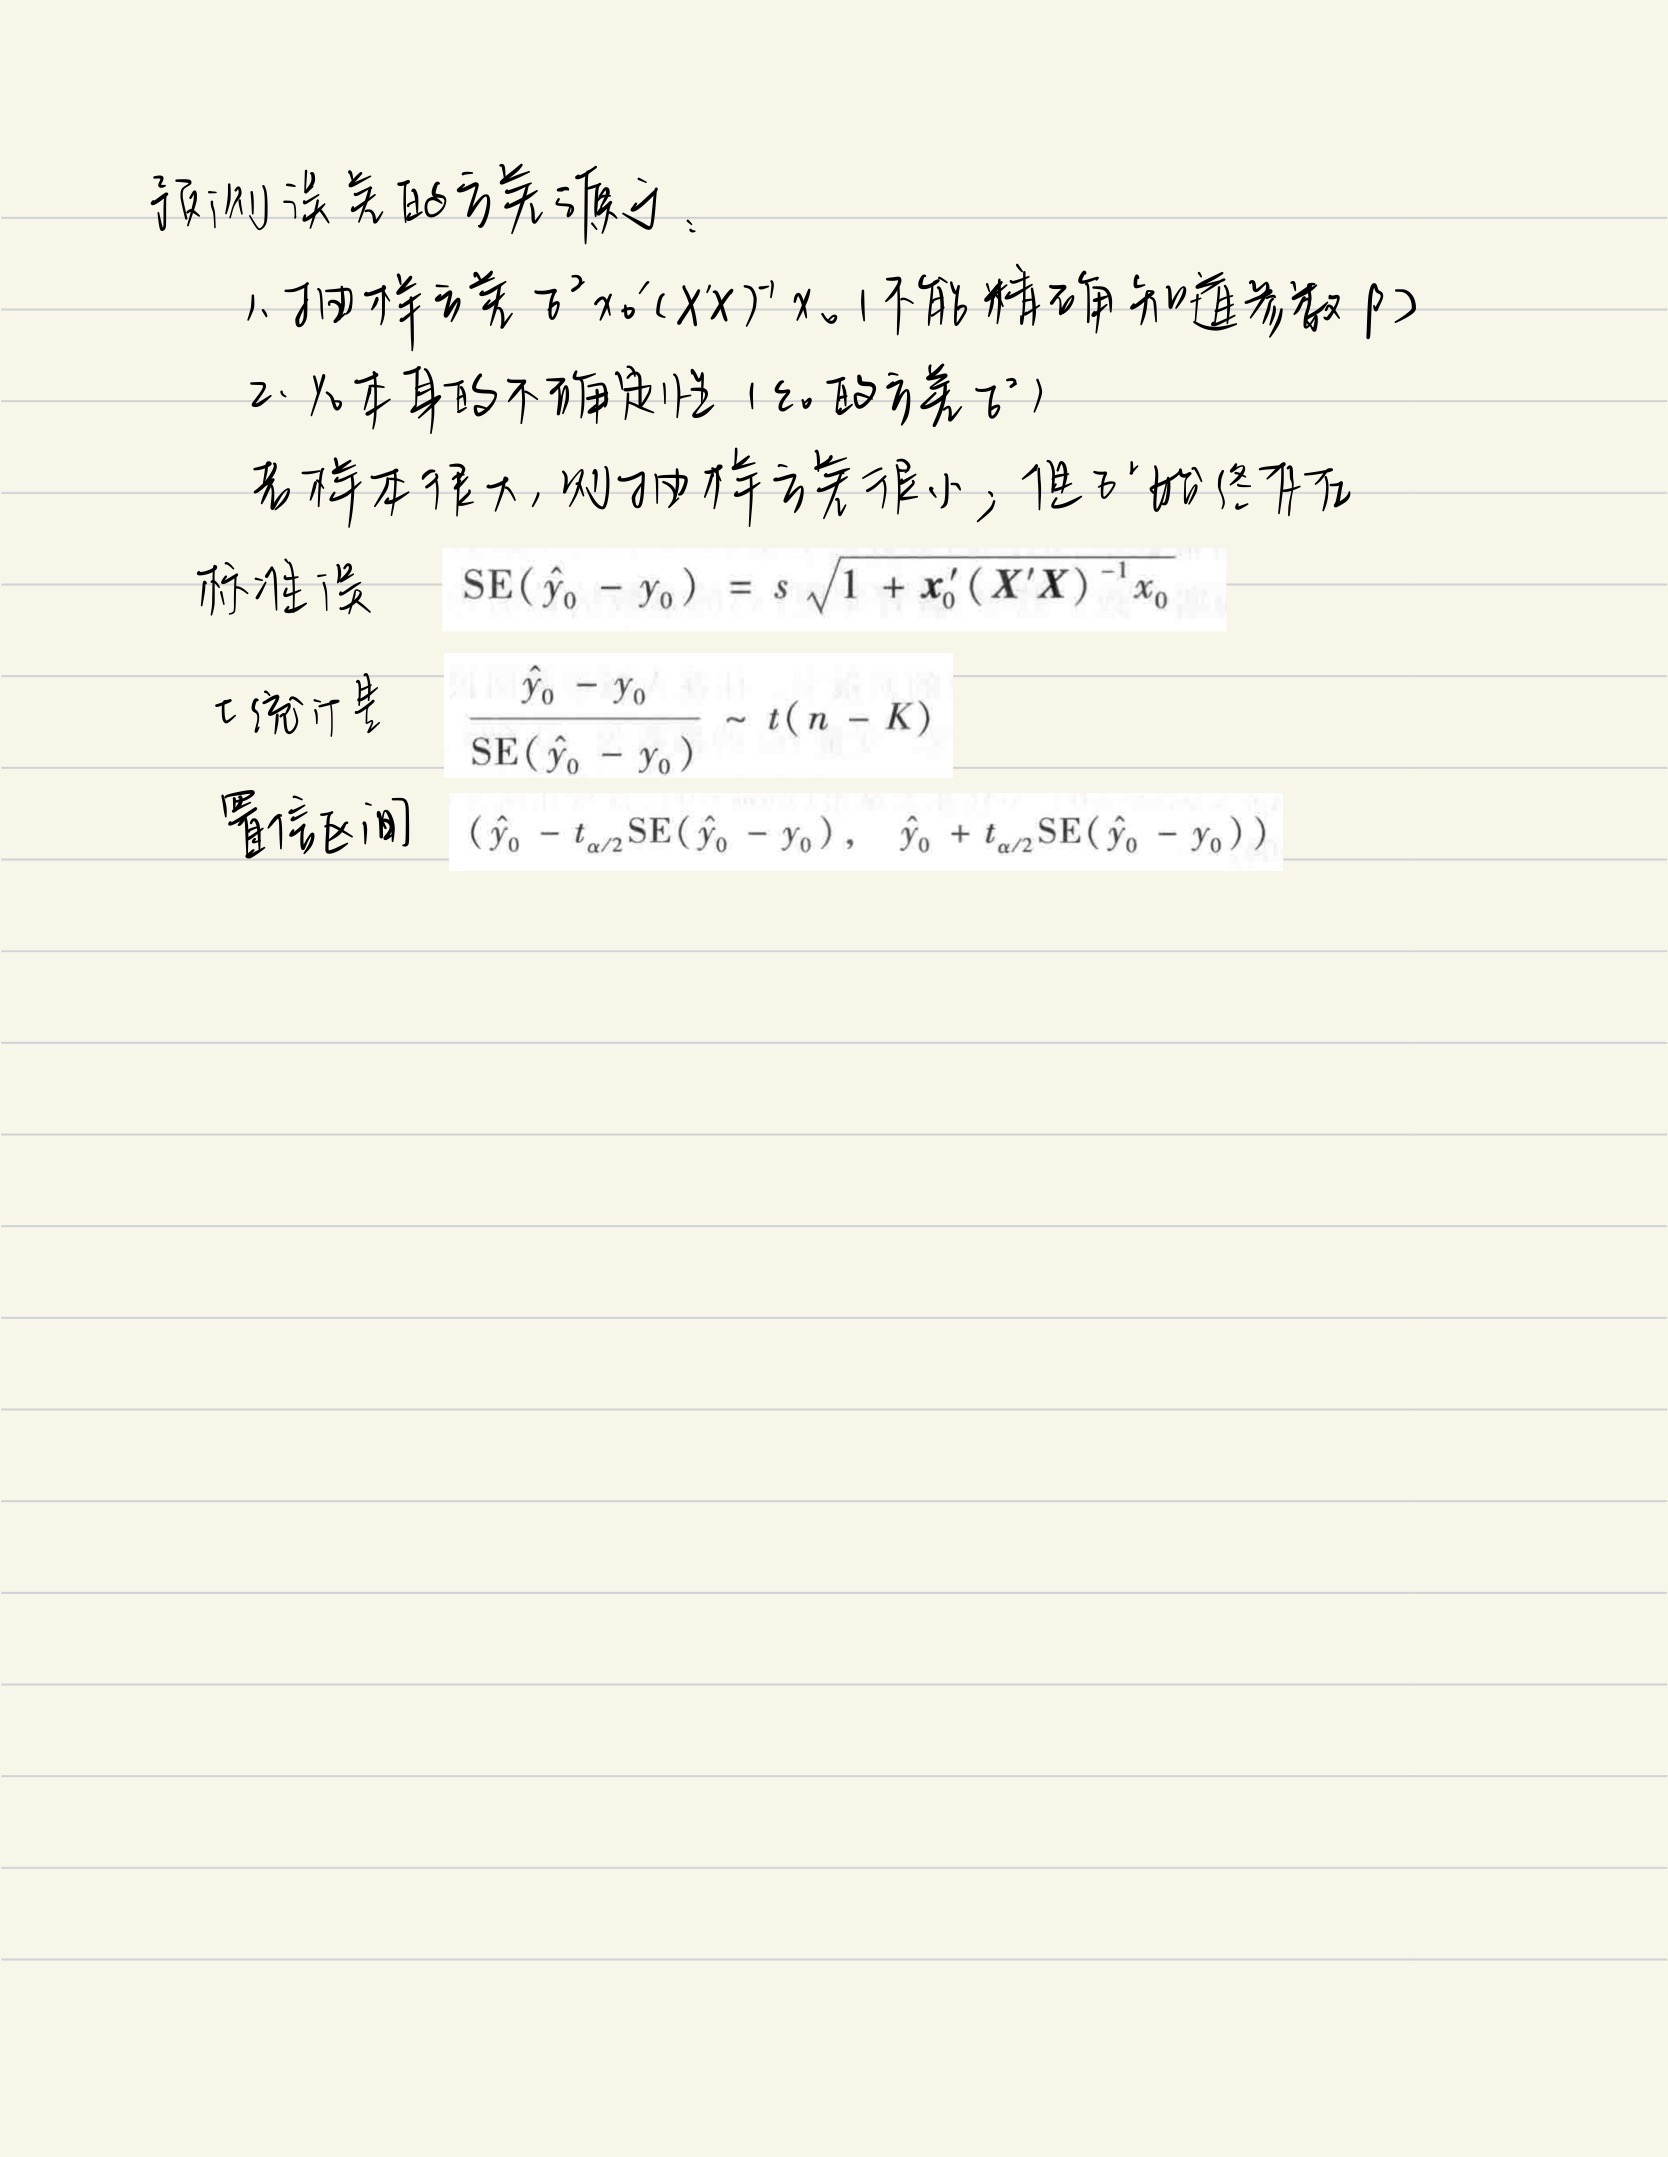 预测误差的方差源于:
1. 抽样方差 σ² x₀′(X′X)⁻¹x₀ (不能精确知道参数β)
2. y₀本身的不确定性 (ε₀的方差σ²)
若样本很大,则抽样方差很小;但σ²始终存在
标准误 SE(ŷ₀ − y₀) = s √(1 + x₀′(X′X)⁻¹x₀)
t统计量 (ŷ₀ − y₀) / SE(ŷ₀ − y₀) ~ t(n − K)
置信区间 (ŷ₀ − t_{α/2}SE(ŷ₀ − y₀), ŷ₀ + t_{α/2}SE(ŷ₀ − y₀))